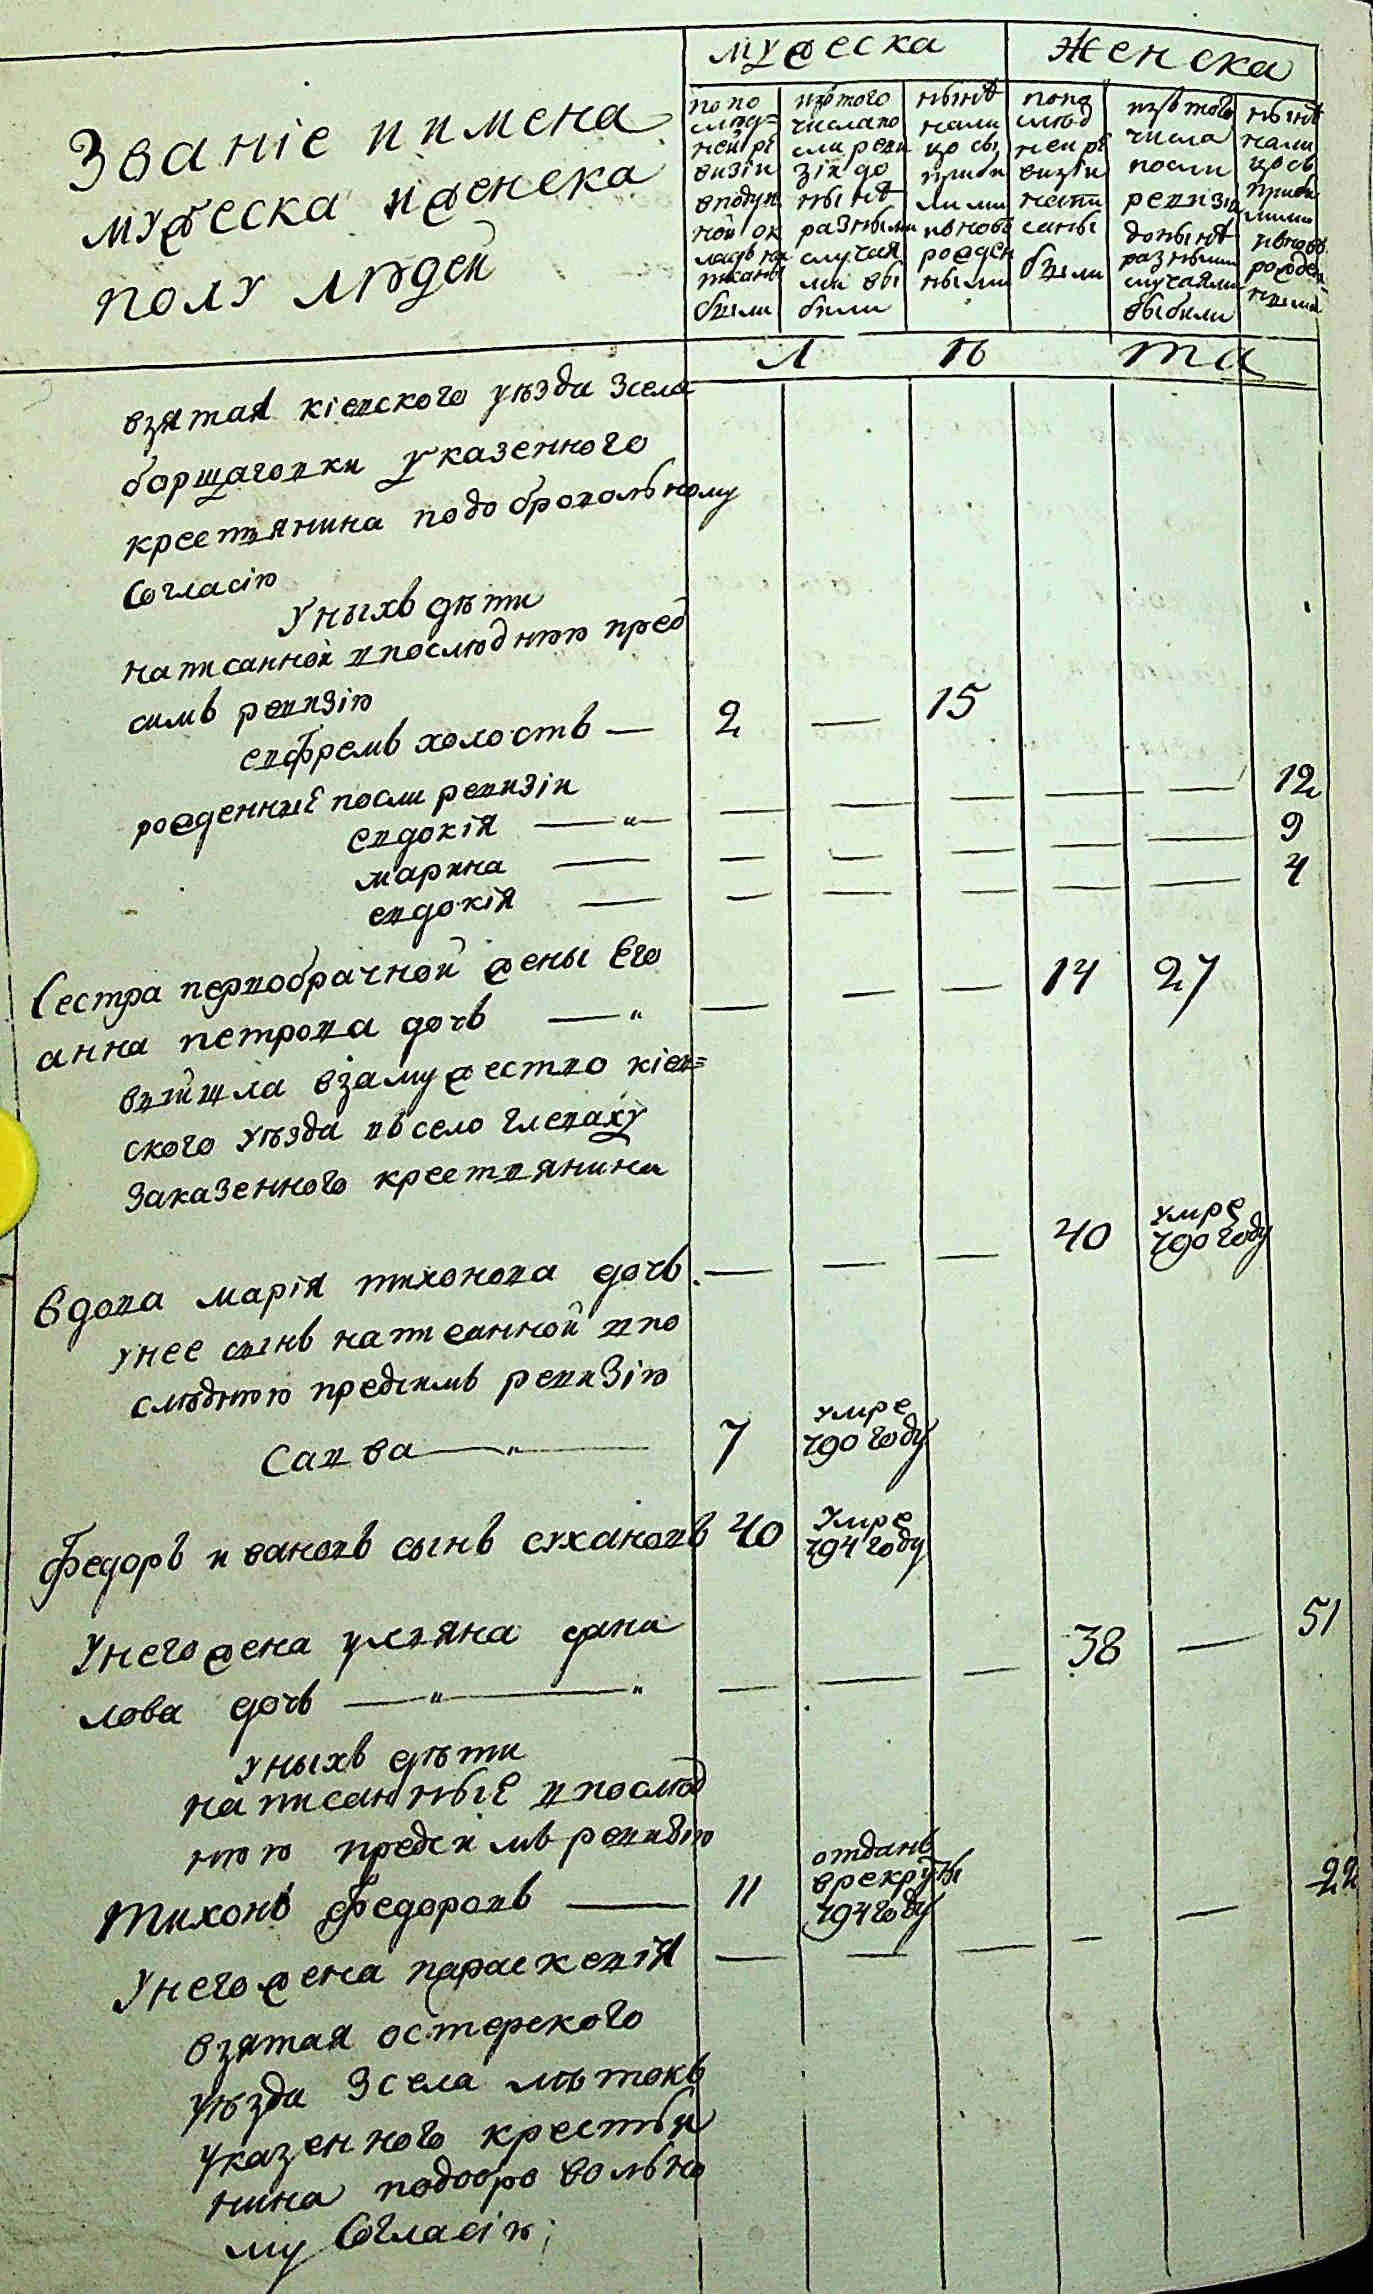 Званіе и имена
мужеска и женска
полу людей
мужеска
женска
по по
след=
ней ре
визіи
в подуш
ной ок
ладъ на
писаны
были
изъ того
числа по
сли реви
зіи до
ныне
разными
случая
ми вы
были
ныне
нали
цо съ
прибы
лими
и новo
рожден
ными
попо
след
ней ре
визіи
напи
саны
были
изъ того
числа
посли
ревизіи
до ныне
разными
случаями
выбыли
ныне
нали
цо съ
прибы
лими
и новo
рожден
ными
л ѣ та
взятая кіевского уѣзда зсела
борщаговки указенного
крестьянина подобровольному
согласію
у ныхъ дѣти
написанной в последнюю пред
симъ ревизію
евфремъ холостъ — 2 — 15
рожденние посли ревизіи
евдокія — — — — — — 12
марина — — — — — — 9
евдокія — — — — — — 4
Сестра первобрачной жены Его
анна петрова дочъ — — — — 14 27
вийшла взамужество кіев=
ского уѣзда въ село глеваху
заказенного крестьянина
Вдова марія тихонова дочъ — — — 40 умре 790 году
унее сынъ написанной в по
следнюю предсимъ ревизію
Савва — 7 умре 790 году
Федоръ ивановъ сынъ сухановъ 40 умре 794 году
У него жена улияна дани
лова дочъ — — — — 38 — 51
у ныхъ дѣти
написанные в послед
нюю предсимъ ревизію
Тихонъ федоровъ — 11 отданъ врекруты 794 году
У него жена параскевія — — — — — 22
взятая остерского
уѣзда зсела лѣтокъ
указенного крестья
нина подоброволъно
му Согласію;